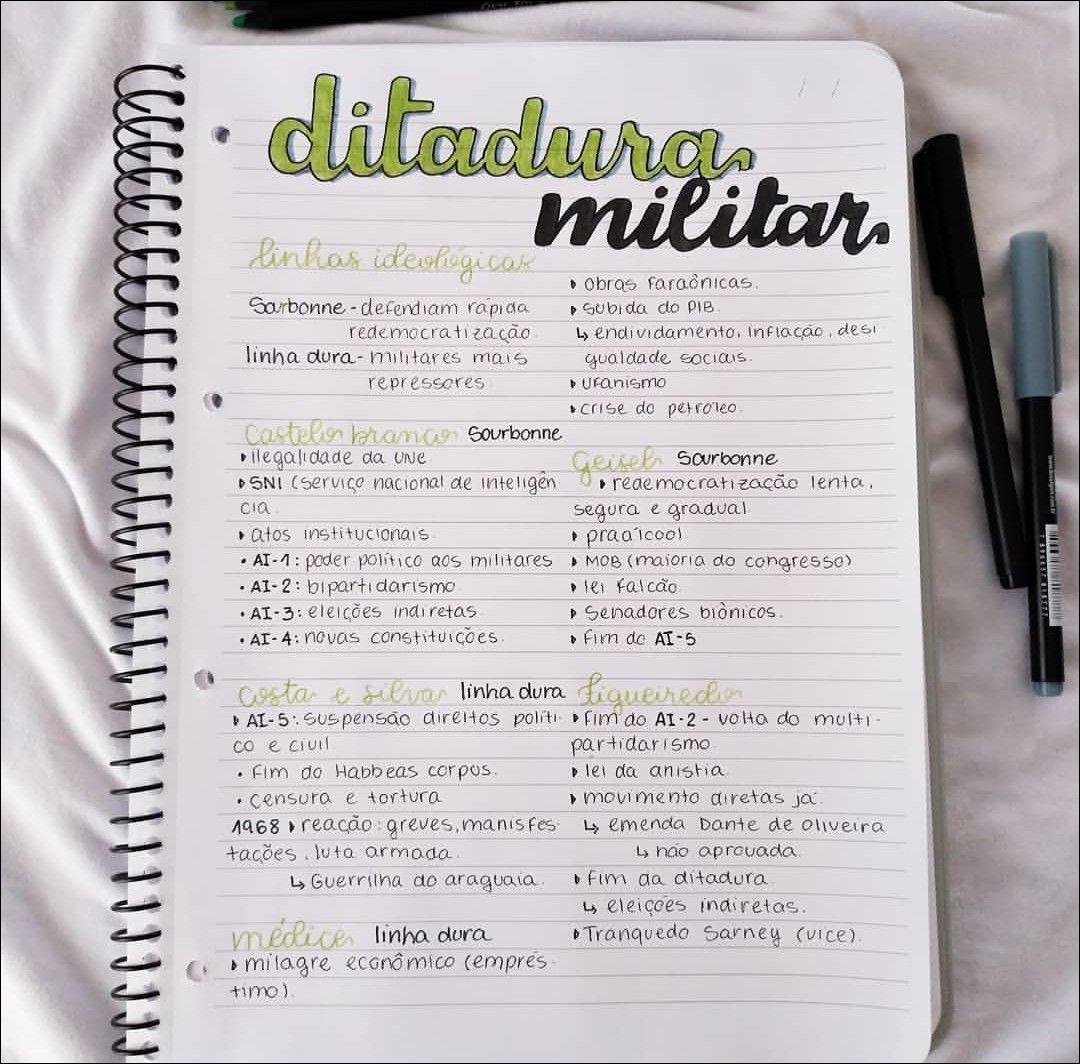 ditadura
militar
linhas ideológicas
Sorbonne - defendiam rápida
redemocratização.
linha dura - militares mais
repressores.
castelo branco Sourbonne
ilegalidade da UNE
SNI (serviço nacional de inteligên
cia.
atos institucionais.
• AI-1: poder político aos militares
• AI-2: bipartidarismo.
• AI-3: eleições indiretas.
• AI-4: novas constituições.
costa e silva linha dura
AI-5: suspensão direitos políti-
co e civil.
• Fim do Habbeas corpus.
• censura e tortura
1968 reação: greves, manisfes-
tações, luta armada.
↳ Guerrilha do araguaia.
médice linha dura
milagre econômico (emprés-
timo).
obras faraônicas.
subida do PIB.
↳ endividamento, inflação, desi
gualdade sociais.
ufanismo
crise do petróleo.
Geisel Sourbonne
redemocratização lenta,
segura e gradual.
praálcool
MOB (maioria do congresso)
lei Falcão
Senadores biônicos.
Fim do AI-5
figueiredo
Fim do AI-2 - volta do multi-
partidarismo.
lei da anistia.
movimento diretas já.
↳ emenda Dante de Oliveira
↳ não aprovada.
Fim da ditadura.
↳ eleições indiretas.
Tranquedo Sarney (vice).